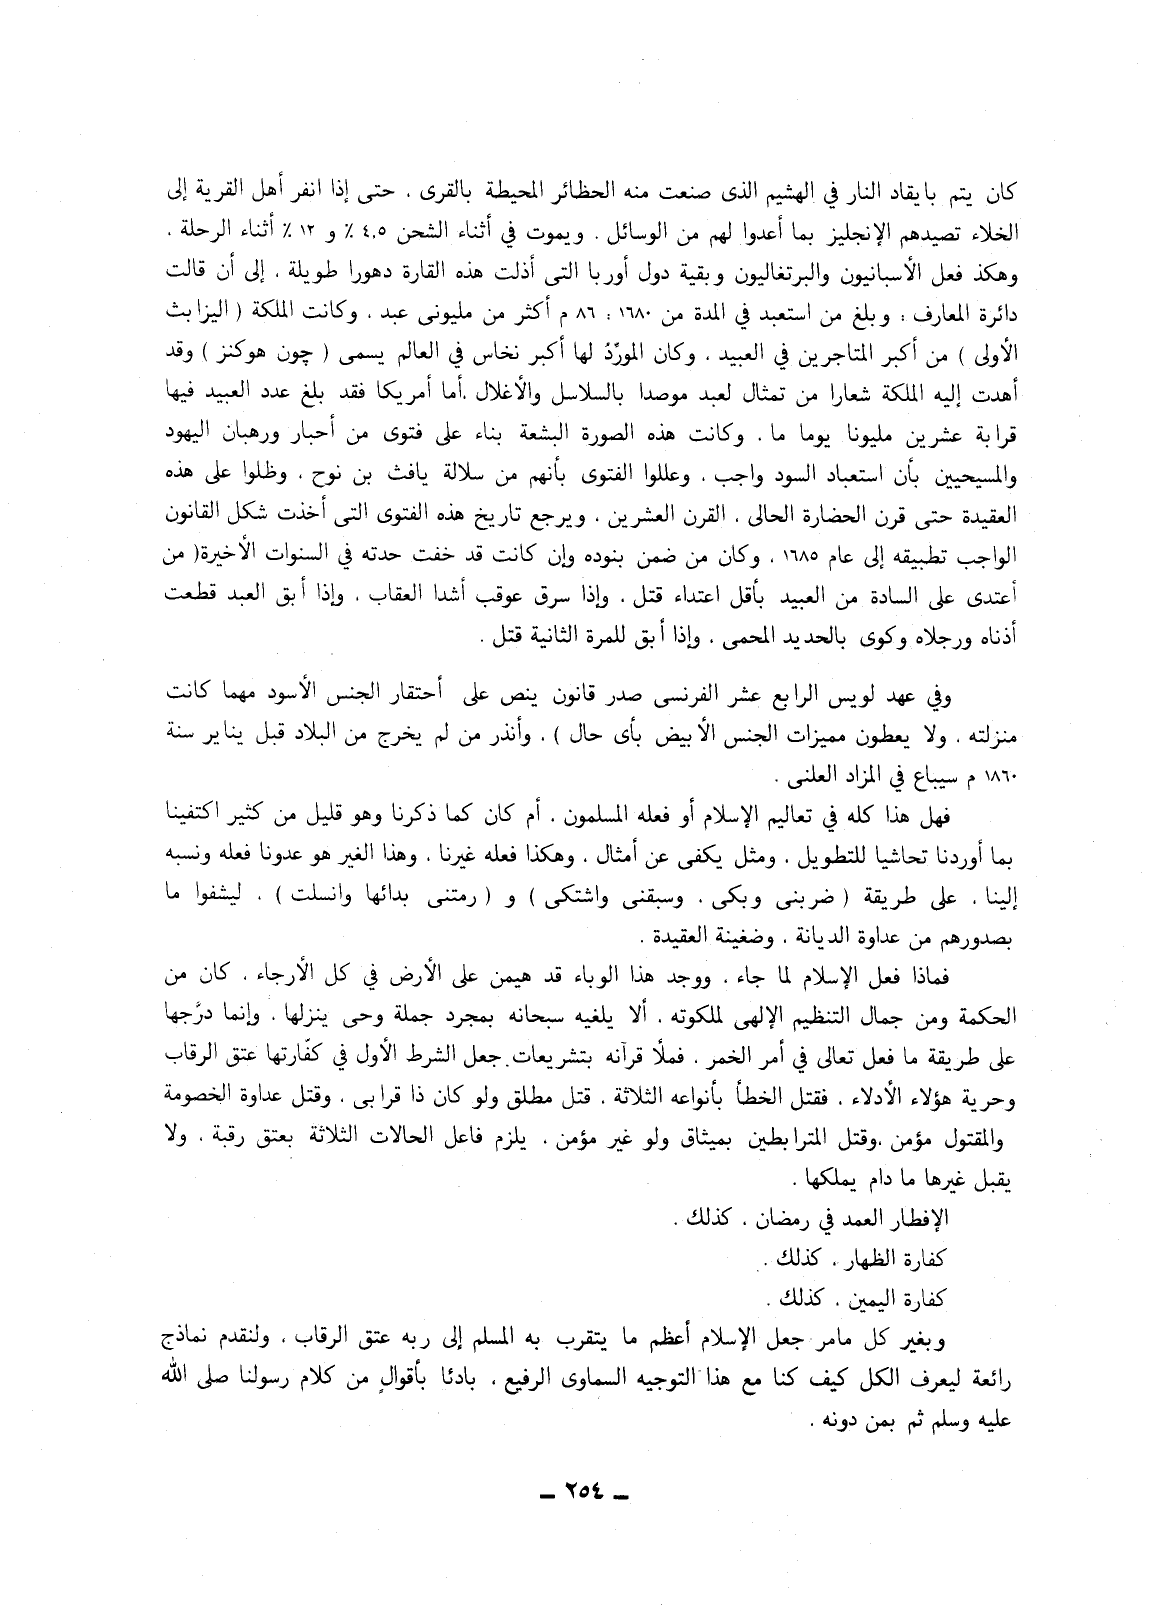 كان يتم بايقاد النار في الهشيم الذى صنعت منه الحظائر المحيطة بالقرى ، حتى إذا انفر أهل القرية إلى
الخلاء تصيدهم الإنجليز بما أعدوا لهم من الوسائل . ويموت في أثناء الشحن ٤,٥ ٪ و ١٢ ٪ أثناء الرحلة ،
وهكذ فعل الأسبانيون والبرتغاليون وبقية دول أوربا التى أذلت هذه القارة دهورا طويلة ، إلى أن قالت
دائرة المعارف : وبلغ من استعبد في المدة من ١٦٨٠ : ٨٦ م أكثر من مليونى عبد ، وكانت الملكة ( اليزابث
الأولى ) من أكبر المتاجرين في العبيد ، وكان المورِّدُ لها أكبر نخاس في العالم يسمى ( چون هوكنز ) وقد
أهدت إليه الملكة شعارا من تمثال لعبد موصدا بالسلاسل والأغلال ،أما أمريكا فقد بلغ عدد العبيد فيها
قرابة عشرين مليونا يوما ما ، وكانت هذه الصورة البشعة بناء على فتوى من أحبار ورهبان اليهود
والمسيحيين بأن استعباد السود واجب ، وعللوا الفتوى بأنهم من سلالة يافث بن نوح ، وظلوا على هذه
العقيدة حتى قرن الحضارة الحالى ، القرن العشرين ، ويرجع تاريخ هذه الفتوى التى أخذت شكل القانون
الواجب تطبيقه إلى عام ١٦٨٥ ، وكان من ضمن بنوده وإن كانت قد خفت حدته في السنوات الأخيرة( من
أعتدى على السادة من العبيد بأقل اعتداء قتل ، وإذا سرق عوقب أشدا العقاب ، وإذا أبق العبد قطعت
أذناه ورجلاه وكوى بالحديد المحمى ، وإذا أبق للمرة الثانية قتل .
وفي عهد لويس الرابع عشر الفرنسى صدر قانون ينص على أحتقار الجنس الأسود مهما كانت
منزلته ، ولا يعطون مميزات الجنس الأبيض بأى حال ) ، وأنذر من لم يخرج من البلاد قبل يناير سنة
١٨٦٠ م سيباع في المزاد العلنى .
فهل هذا كله في تعاليم الإسلام أو فعله المسلمون ، أم كان كما ذكرنا وهو قليل من كثير اكتفينا
بما أوردنا تحاشيا للتطويل ، ومثل يكفى عن أمثال ، وهكذا فعله غيرنا ، وهذا الغير هو عدونا فعله ونسبه
إلينا ، على طريقة ( ضربنى وبكى ، وسبقنى واشتكى ) و ( رمتنى بدائها وانسلت ) ، ليشفوا ما
بصدورهم من عداوة الديانة ، وضغينة العقيدة .
فماذا فعل الإسلام لما جاء ، ووجد هذا الوباء قد هيمن على الأرض في كل الأرجاء ، كان من
الحكمة ومن جمال التنظيم الإلهى لملكوته ، ألا يلغيه سبحانه بمجرد جملة وحى ينزلها ، وإنما درَّجها
على طريقة ما فعل تعالى في أمر الخمر ، فملأ قرآنه بتشريعات جعل الشرط الأول في كفّارتها عتق الرقاب
وحرية هؤلاء الأدلاء ، فقتل الخطأ بأنواعه الثلاثة ، قتل مطلق ولو كان ذا قرابى ، وقتل عداوة الخصومة
والمقتول مؤمن ،وقتل المترابطين بميثاق ولو غير مؤمن ، يلزم فاعل الحالات الثلاثة بعتق رقبة ، ولا
يقبل غيرها ما دام يملكها .
الإفطار العمد في رمضان ، كذلك .
كفارة الظهار ، كذلك .
كفارة اليمين ، كذلك .
وبغير كل مامر جعل الإسلام أعظم ما يتقرب به المسلم إلى ربه عتق الرقاب ، ولنقدم نماذج
رائعة ليعرف الكل كيف كنا مع هذا التوجيه السماوى الرفيع ، بادئا بأقوالٍ من كلام رسولنا صلى الله
عليه وسلم ثم بمن دونه .
ـ ٢٥٤ ـ